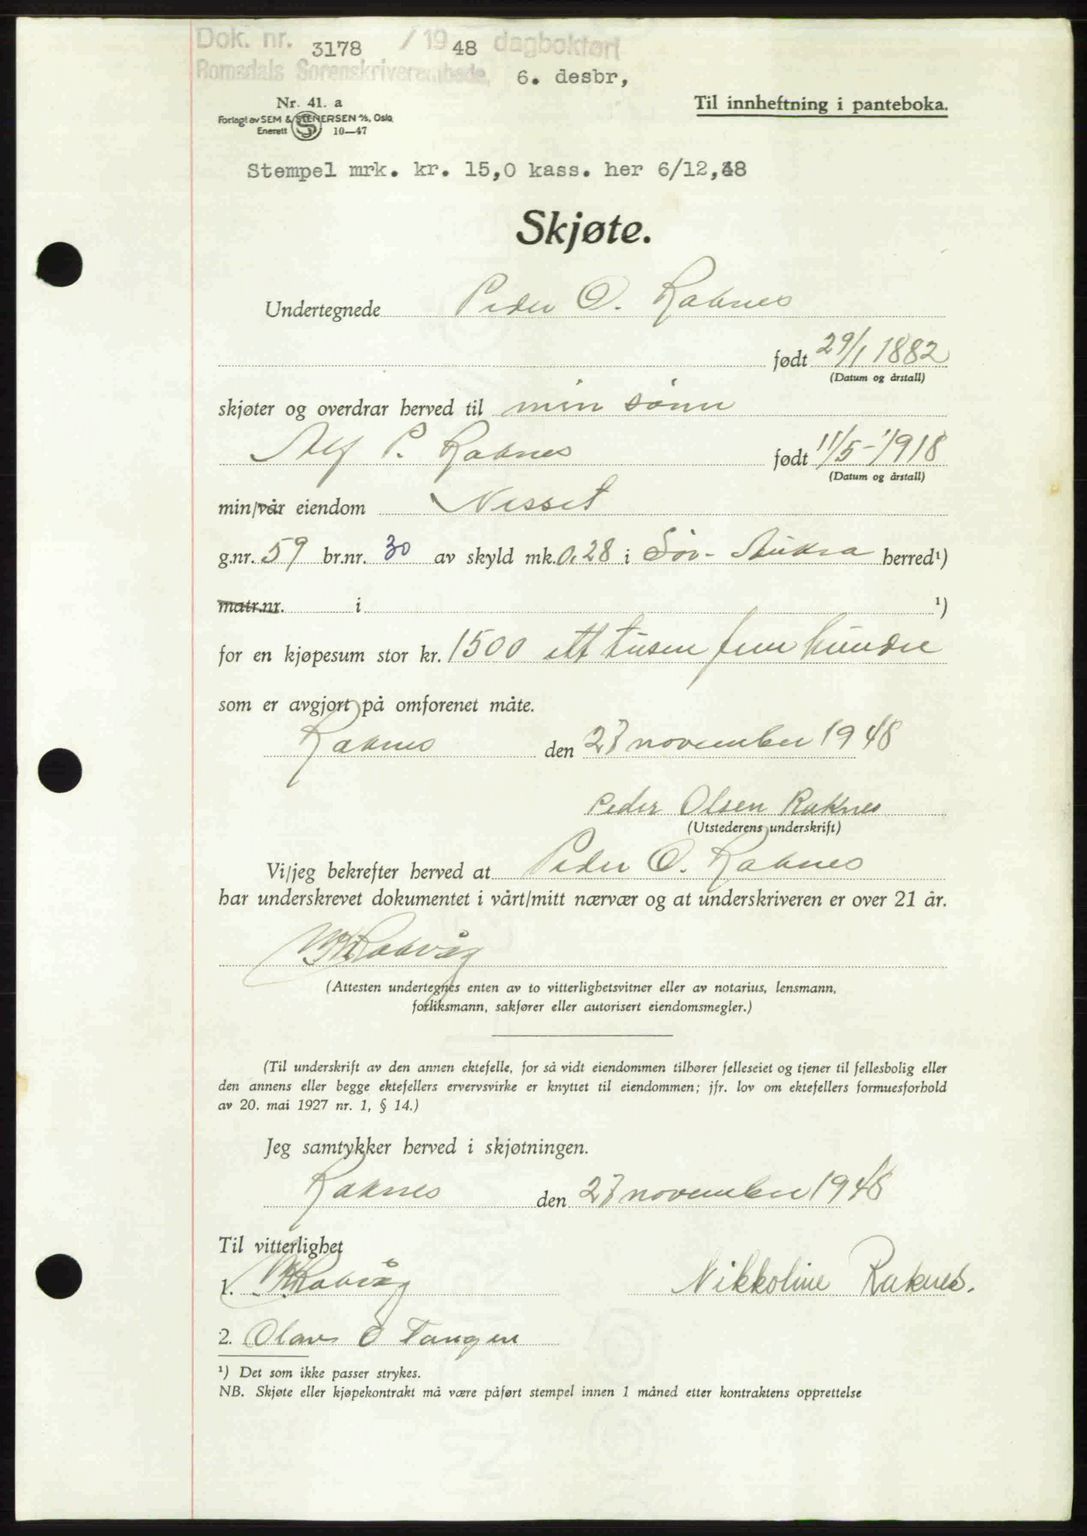 Dok. nr. 3178 / 1948 dagboktørt
Romsdals Sorenskriverembede, 6. desbr,
Nr. 41. a
Forlagt av SEM & STENERSEN A/S, Oslo
Enerett 10—47
Til innheftning i panteboka.
Stempel mrk. kr. 15,0 kass. her 6/12,48
Skjøte.
Undertegnede Peder O. Raknes
født 29/1 1882
(Datum og årstall)
skjøter og overdrar herved til min sønn
Alf P. Raknes født 11/5-1918
(Datum og årstall)
min/vår eiendom Nesset
g.nr. 59 br.nr. 30 av skyld mk. 0,28 i Sør-Aukra herred¹)
matr.nr. i ¹)
for en kjøpesum stor kr. 1500 ett tusen fem hundre
som er avgjort på omforenet måte.
Raknes den 23 november 1948
Peder Olsen Raknes
(Utstederens underskrift)
Vi/jeg bekrefter herved at Peder O. Raknes
har underskrevet dokumentet i vårt/mitt nærvær og at underskriveren er over 21 år.
(Attesten undertegnes enten av to vitterlighetsvitner eller av notarius, lensmann,
forliksmann, sakfører eller autorisert eiendomsmegler.)
(Til underskrift av den annen ektefelle, for så vidt eiendommen tilhører felleseiet og tjener til fellesbolig eller
den annens eller begge ektefellers ervervsvirke er knyttet til eiendommen; jfr. lov om ektefellers formuesforhold
av 20. mai 1927 nr. 1, § 14.)
Jeg samtykker herved i skjøtningen.
Raknes den 23 november 1948
Til vitterlighet
1. Nikkoline Raknes.
2. Olav O Tangen
¹) Det som ikke passer strykes.
NB. Skjøte eller kjøpekontrakt må være påført stempel innen 1 måned etter kontraktens opprettelse